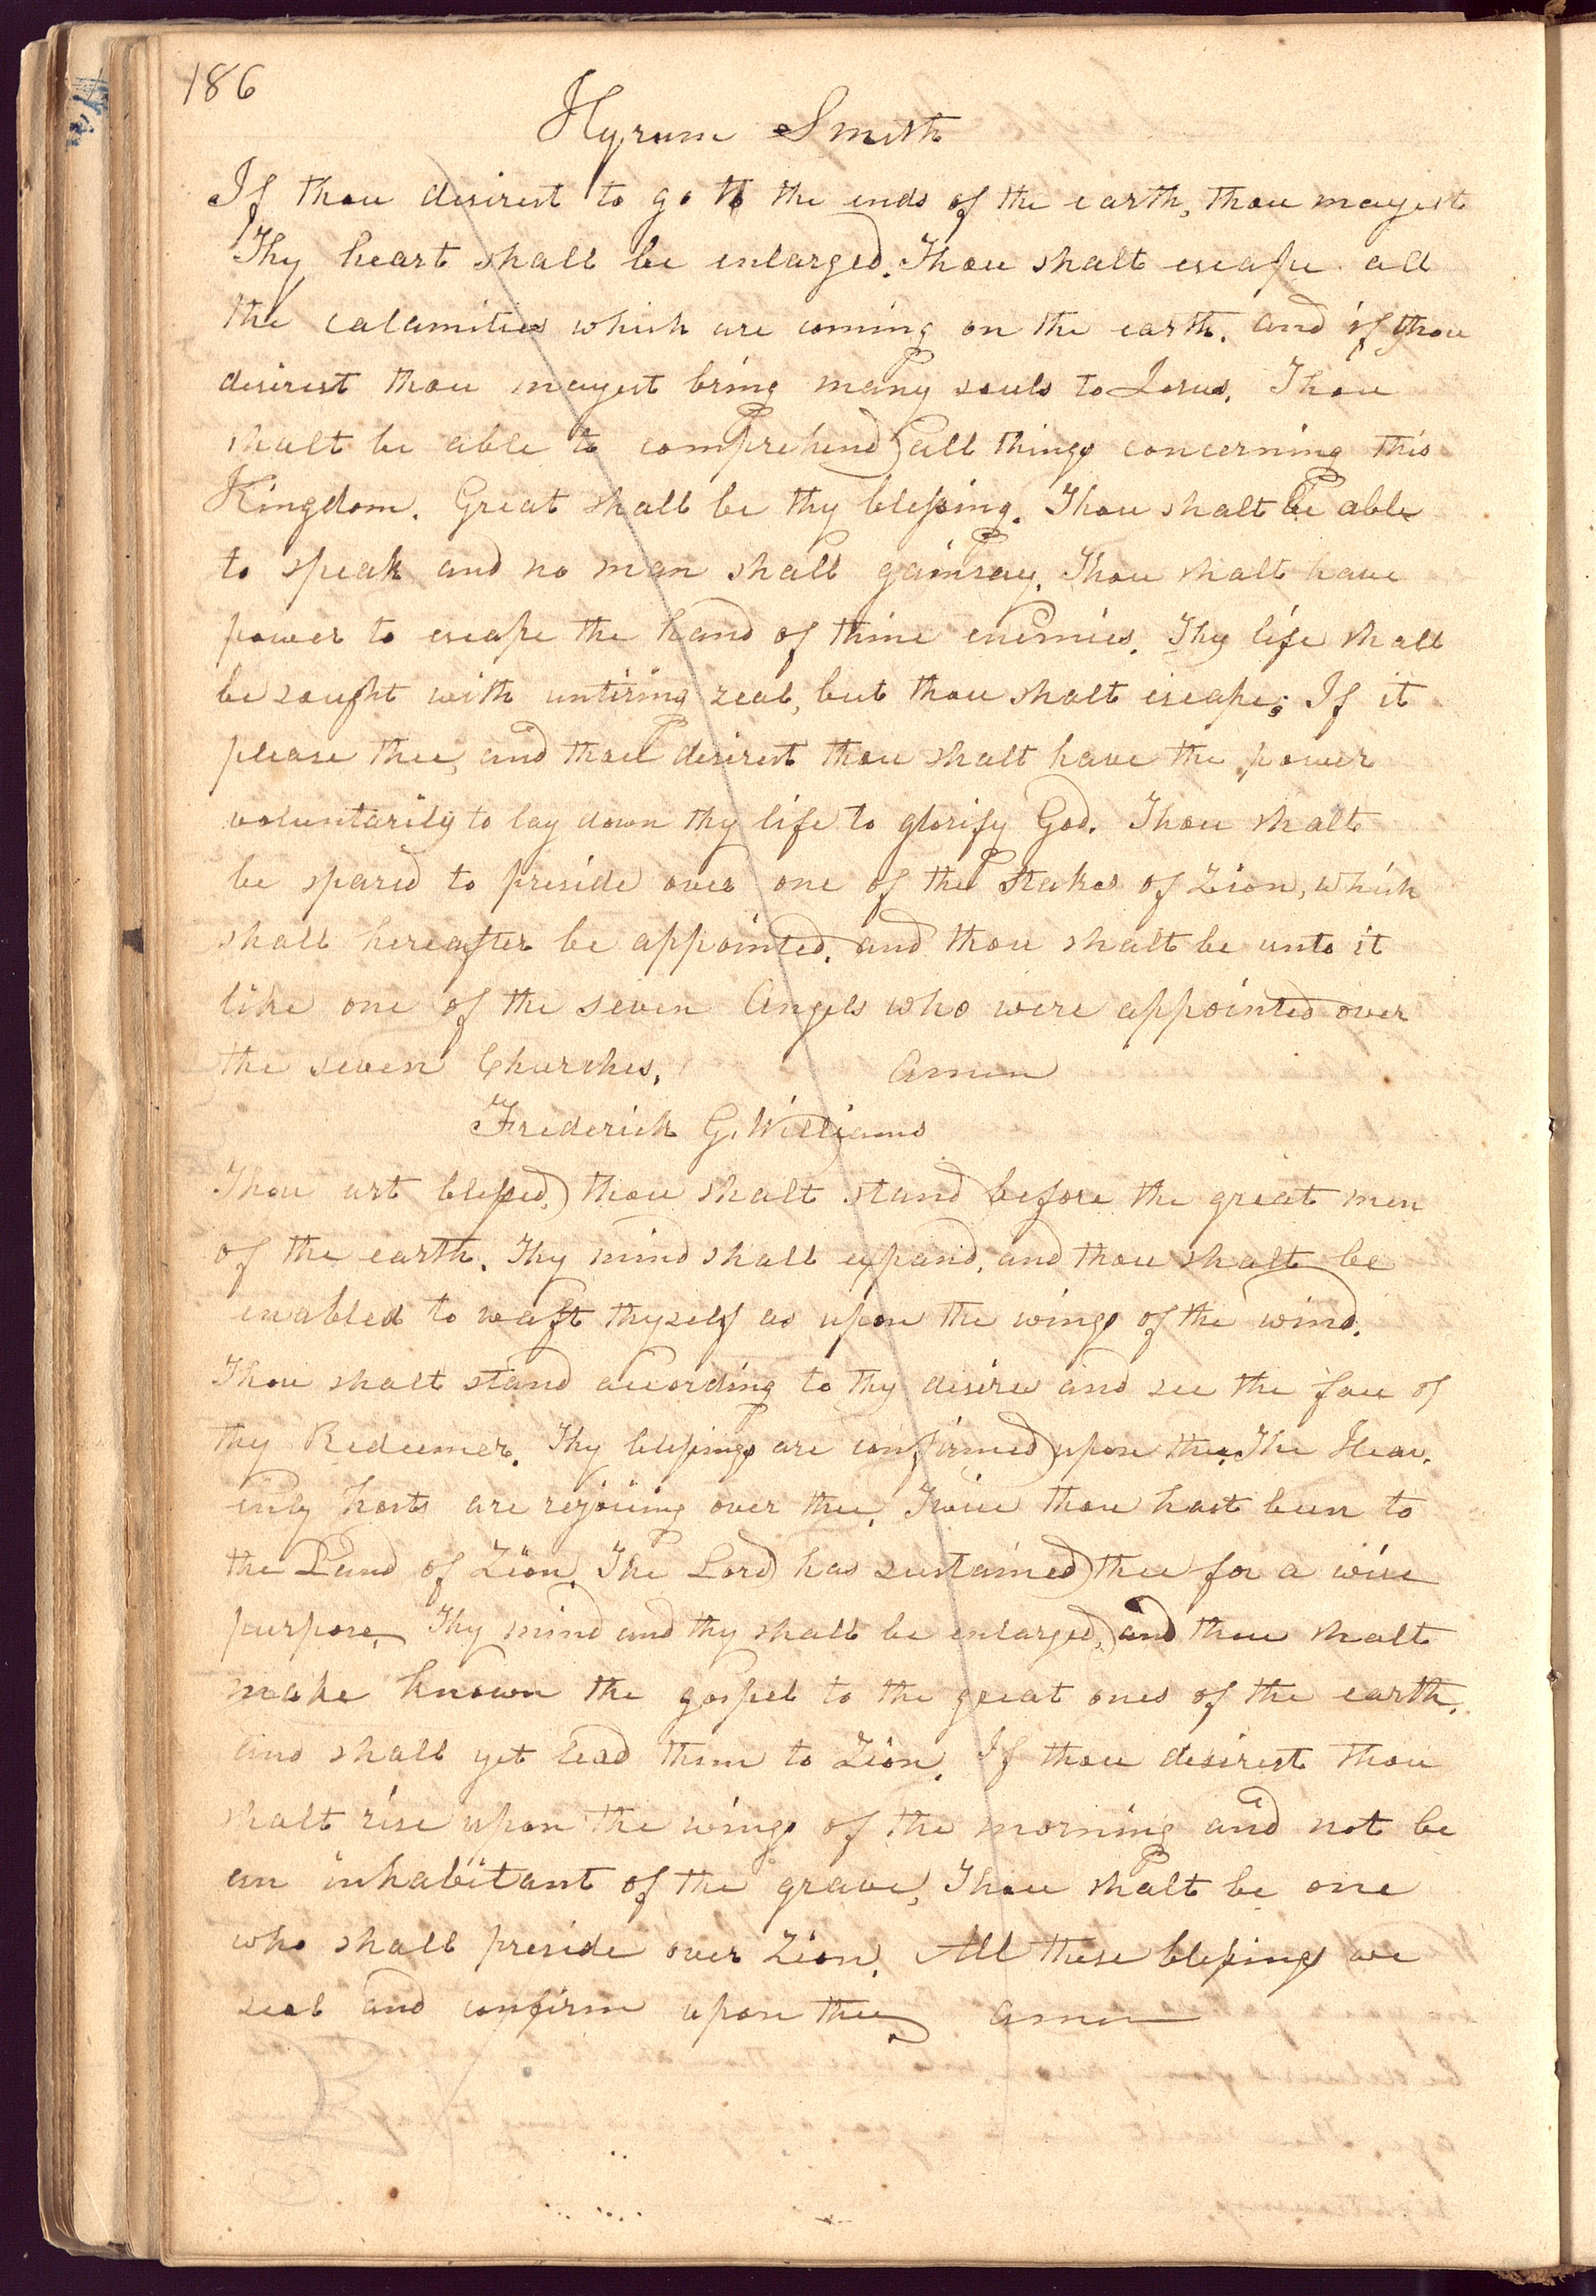 186
Hyrum Smith
If thou desirest to go to the ends of the earth, thou mayest
Thy heart shall be enlarged. Thou shalt escape all
the calamities which are coming on the earth. and if thou
desirest thou mayest bring many souls to Jesus. Thou
shalt be able to comprehend all things concerning this
Kingdom. Great shall be thy blessing. Thou shalt be able
to speak and no man shall gainsay. Thou shalt have
power to escape the hand of thine enemies. Thy life shall
be sought with untiring zeal, but thou shalt escape; If it
please thee, and thou desirest thou shalt have the power
voluntarily to lay down thy life to glorify God. Thou shalt
be spared to preside over one of the Stakes of Zion, which
shall hereafter be appointed. and thou shalt be unto it
like one of the seven Angels who were appointed over
the seven Churches. Amen
Frederick G. Williams
Thou art blessed, thou shalt stand before the great men
of the earth. Thy mind shall expand, and thou shalt be
enabled to waft thyself as upon the wings of the wind.
Thou shalt stand according to thy desires and see the face of
thy Redeemer. Thy blessings are confirmed upon thee. The Heav.
enly hosts are rejoicing over thee. Twice thou hast been to
the Land of Zion. The Lord has sustained thee for a wise
purpose. Thy mind and thy shall be enlarged, and thou shalt
make known the gospel to the great ones of the earth.
and shall yet lead them to Zion. If thou desirest thou
shalt rise upon the wings of the morning and not be
an inhabitant of the grave, Thou shalt be one
who shall preside over Zion. All these blessings we
seal and confirm upon thee Amen